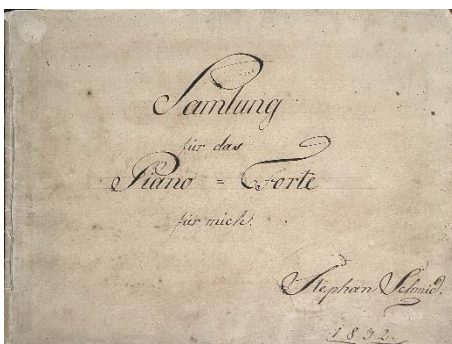 Samlung
für das
Piano = Forte
für mich.
Stephan Schmid.
1832.